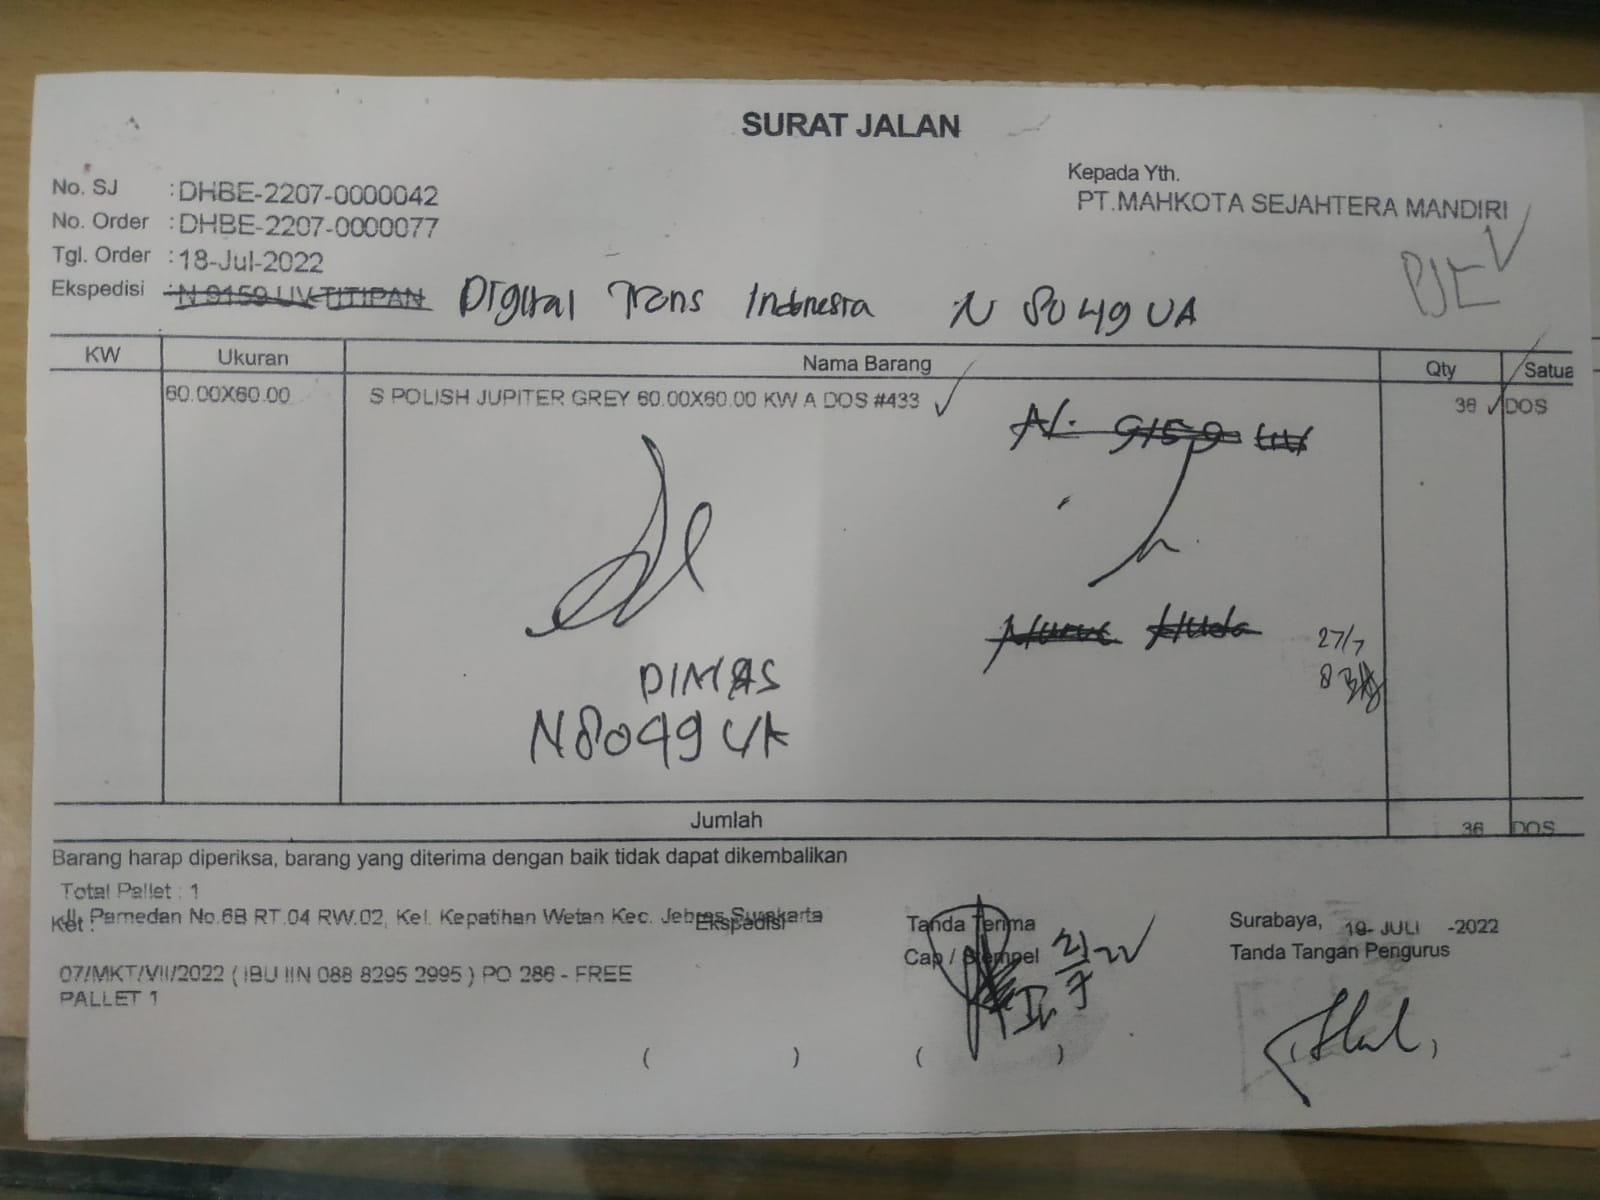 SURAT JALAN
No. SJ :DHBE-2207-0000042
No. Order :DHBE-2207-0000077
Tgl. Order :18-Jul-2022
Ekspedisi :N 9159 UV TITIPAN Digital Trans Indonesia N 8049 UA
Kepada Yth.
PT.MAHKOTA SEJAHTERA MANDIRI
KW Ukuran Nama Barang Qty Satua
60.00X60.00 S POLISH JUPITER GREY 60.00X60.00 KW A DOS #433 36 DOS
9159
27/7
8
DIMAS
N8049 UA
Jumlah 36 DOS
Barang harap diperiksa, barang yang diterima dengan baik tidak dapat dikembalikan
Total Pallet : 1
Ket : Jl. Pamedan No.6B RT.04 RW.02, Kel. Kepatihan Wetan Kec. Jebres Surakarta
Ekspedisi
07/MKT/VII/2022 ( IBU IIN 088 8295 2995 ) PO 286 - FREE
PALLET 1
Tanda Terima
Cap / Stempel
Surabaya, 19- JULI -2022
Tanda Tangan Pengurus
( ) ( )